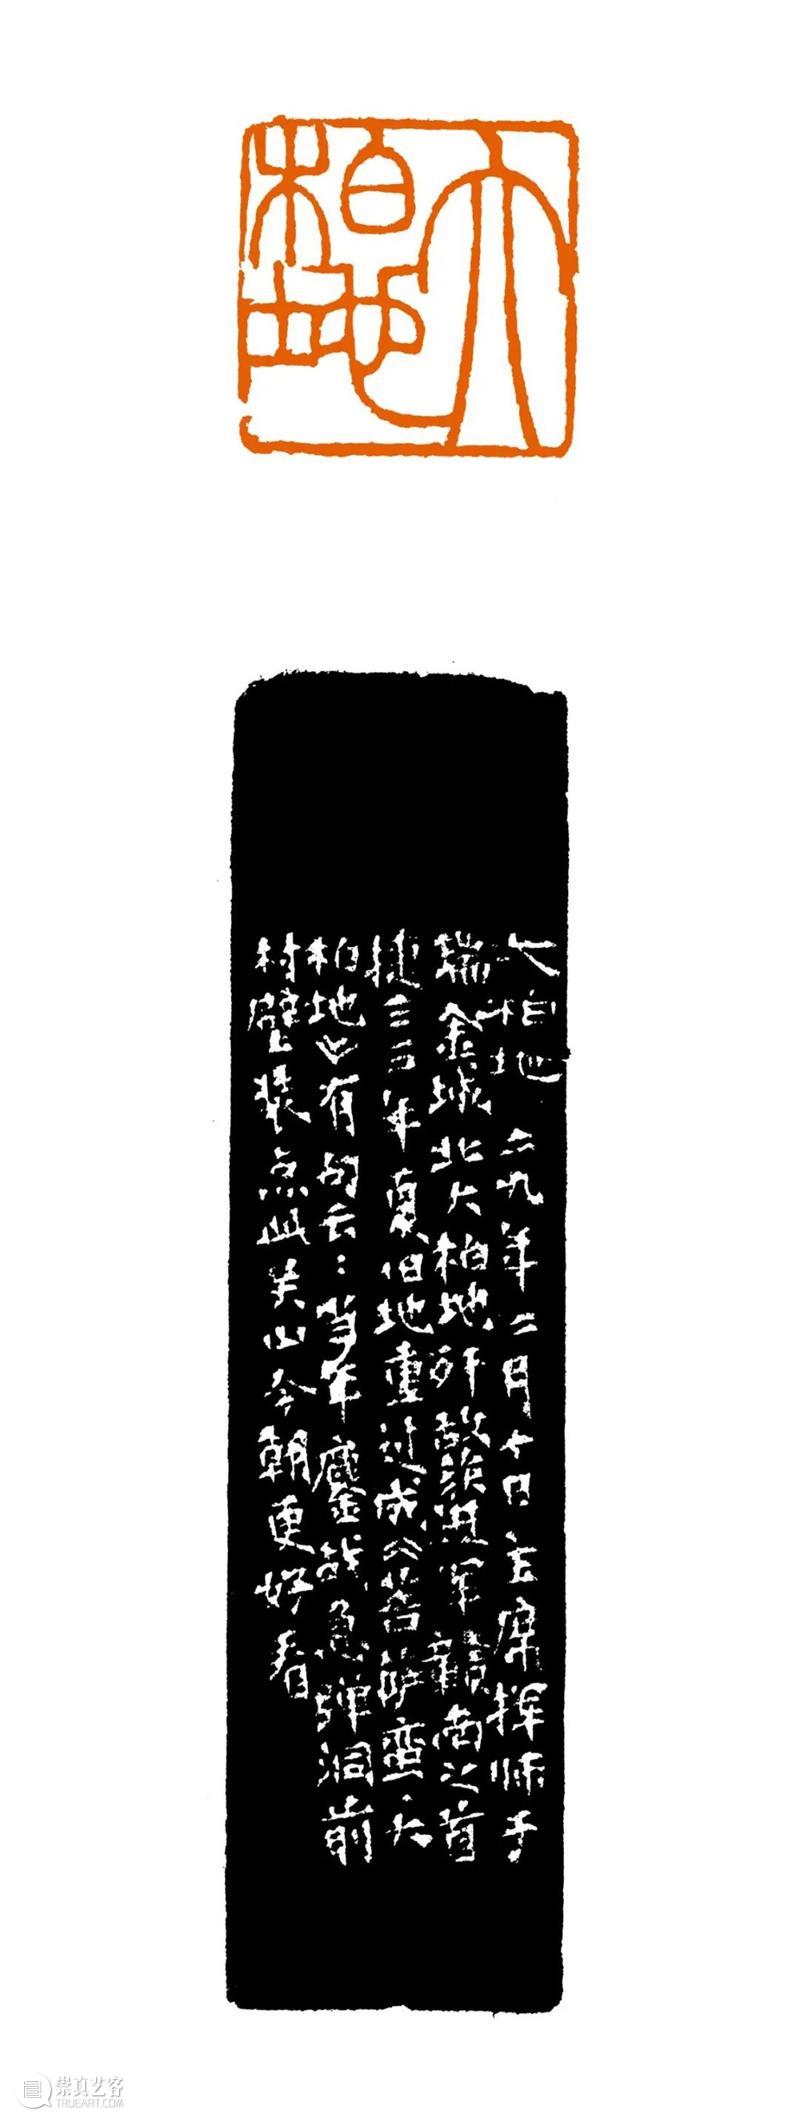 大
柏地
大柏地 二九年二月十日主席挥师于
瑞金城北大柏地歼敌获进军赣南之首
捷三三年夏旧地重过成《菩萨蛮·大
柏地》有句云：当年鏖战急弹洞前
村壁装点此关山今朝更好看
崇真艺客
TRUEART.COM